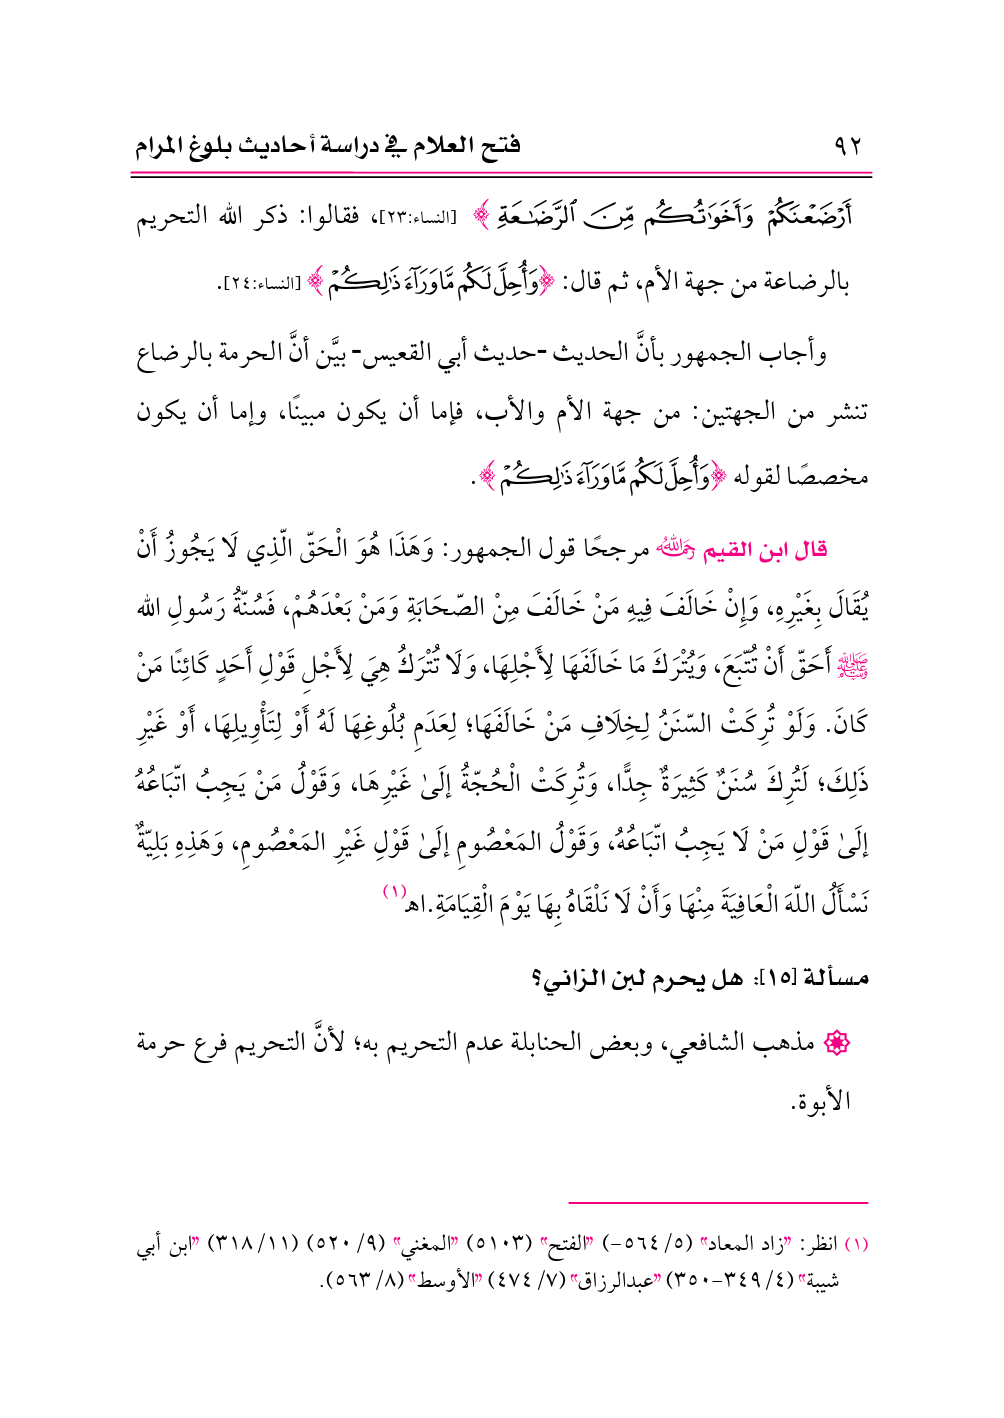 ٩٢ فتح العلام في دراسة أحاديث بلوغ المرام
أَرْضَعْنَكُمْ وَأَخَوَٰتُكُم مِّنَ ٱلرَّضَٰعَةِ ﴾ [النساء:٢٣]، فقالوا: ذكر الله التحريم
بالرضاعة من جهة الأم، ثم قال: ﴿وَأُحِلَّ لَكُم مَّا وَرَآءَ ذَٰلِكُمْ ﴾ [النساء:٢٤].
وأجاب الجمهور بأنَّ الحديث -حديث أبي القعيس- بيَّن أنَّ الحرمة بالرضاع
تنشر من الجهتين: من جهة الأم والأب، فإما أن يكون مبينًا، وإما أن يكون
مخصصًا لقوله ﴿وَأُحِلَّ لَكُم مَّا وَرَآءَ ذَٰلِكُمْ ﴾.
قال ابن القيم رحمه الله مرجحًا قول الجمهور: وَهَذَا هُوَ الْحَقّ الّذِي لَا يَجُوزُ أَنْ
يُقَالَ بِغَيْرِهِ، وَإِنْ خَالَفَ فِيهِ مَنْ خَالَفَ مِنْ الصّحَابَةِ وَمَنْ بَعْدَهُمْ، فَسُنّةُ رَسُولِ الله
ﷺ أَحَقّ أَنْ تُتّبَعَ، وَيُتْرَكَ مَا خَالَفَهَا لِأَجْلِهَا، وَلَا تُتْرَكُ هِيَ لِأَجْلِ قَوْلِ أَحَدٍ كَائِنًا مَنْ
كَانَ. وَلَوْ تُرِكَتْ السّنَنُ لِخِلَافِ مَنْ خَالَفَهَا؛ لِعَدَمِ بُلُوغِهَا لَهُ أَوْ لِتَأْوِيلِهَا، أَوْ غَيْرِ
ذَلِكَ؛ لَتُرِكَ سُنَنٌ كَثِيرَةٌ جِدًّا، وَتُرِكَتْ الْحُجّةُ إلَىٰ غَيْرِهَا، وَقَوْلُ مَنْ يَجِبُ اتّبَاعُهُ
إلَىٰ قَوْلِ مَنْ لَا يَجِبُ اتّبَاعُهُ، وَقَوْلُ المَعْصُومِ إلَىٰ قَوْلِ غَيْرِ المَعْصُومِ، وَهَذِهِ بَلِيّةٌ
نَسْأَلُ اللّهَ الْعَافِيَةَ مِنْهَا وَأَنْ لَا نَلْقَاهُ بِهَا يَوْمَ الْقِيَامَةِ.اهـ(١)
مسألة [١٥]: هل يحرم لبن الزاني؟
مذهب الشافعي، وبعض الحنابلة عدم التحريم به؛ لأنَّ التحريم فرع حرمة
الأبوة.
(١) انظر: "زاد المعاد" (٥/ ٥٦٤-) "الفتح" (٥١٠٣) "المغني" (٩/ ٥٢٠) (١١/ ٣١٨) "ابن أبي
شيبة" (٤/ ٣٤٩-٣٥٠) "عبدالرزاق" (٧/ ٤٧٤) "الأوسط" (٨/ ٥٦٣).